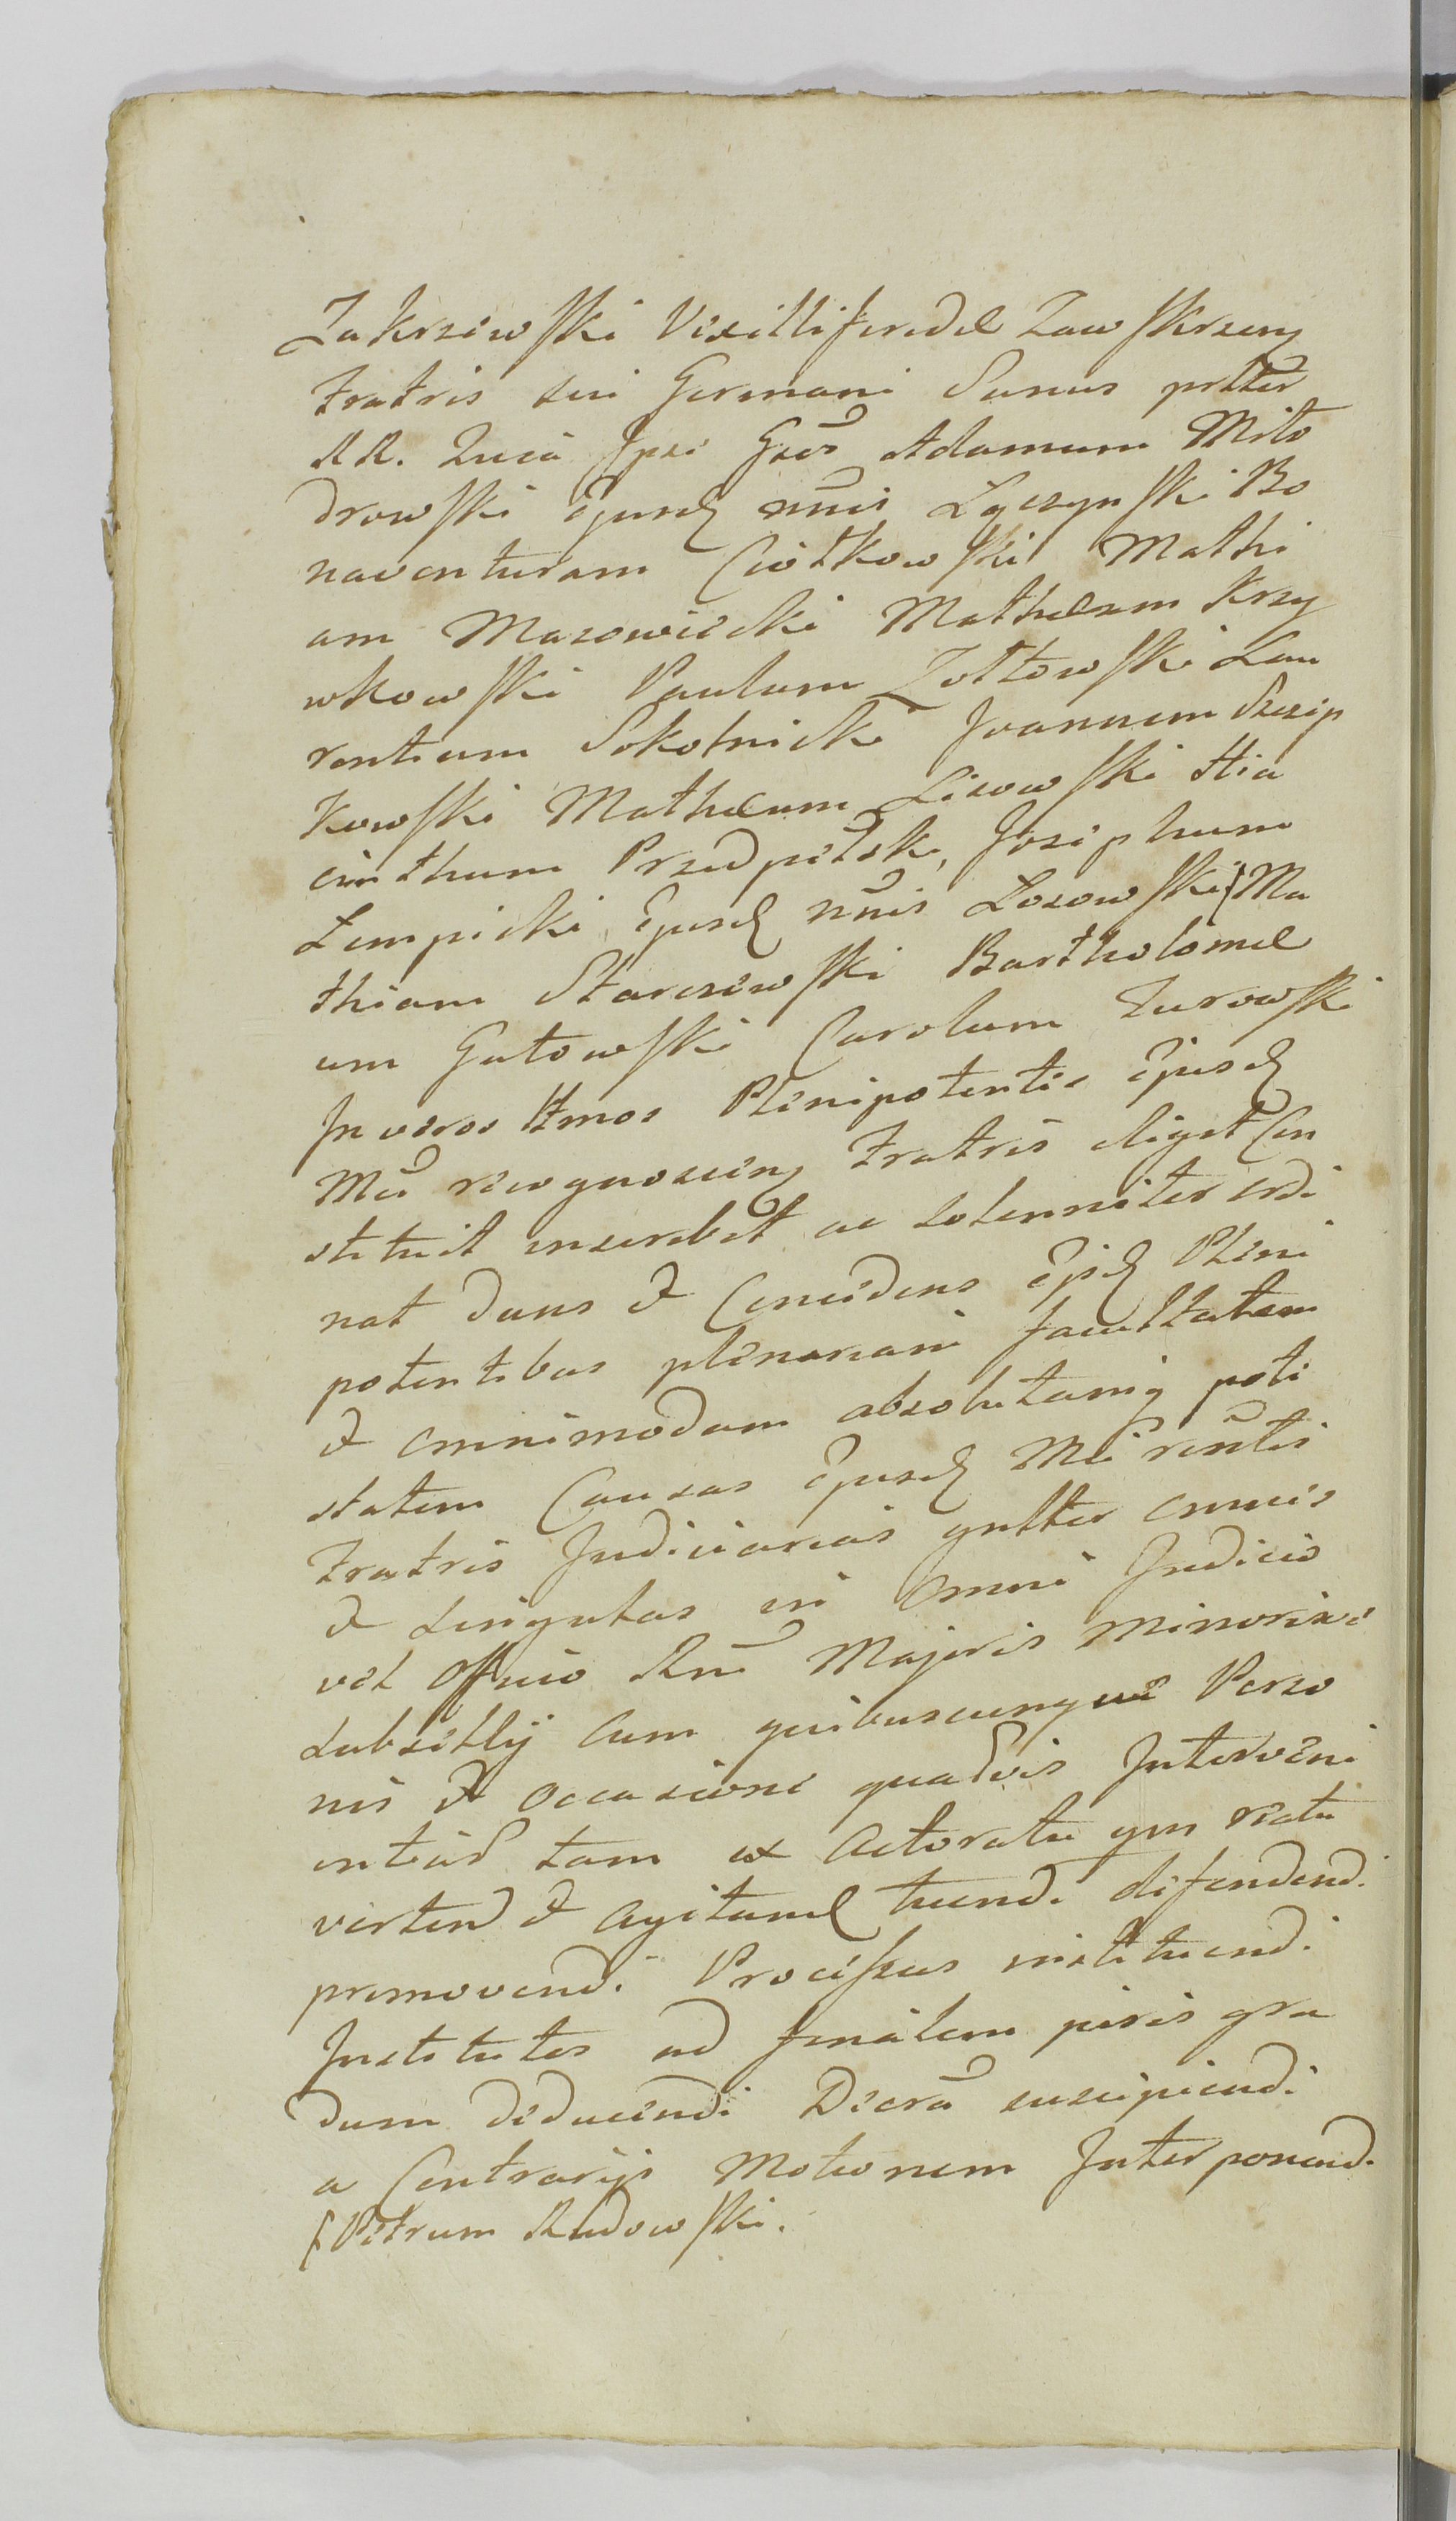 Zakrzewski Vexilliferidae Zawskrzeny
Fratris sui Germani Sanus prltter
RR. Quia Ipse Gsos Adamum Miło
drowski Ejusd nnis Łączynski Bo
naventuram Ciołkowski Mathi
am Mazowiecki Mathaeum Krzy
wkowski Paulum Zołtowski Lau
rentium Sokolnicki Joannem Szczip
kowski Mathaeum Lisowski Hia
cinthum Przedpełski, Josephum
Łempicki Ejusd nnis Łozowski [Ma
thiam Starczewski Bartholomae
um Gutowski Carolum Zurowski
In veros Ltmos Plenipotentes Ejusd
Mci recognoscen Fratris eligit Con
stituit inscribit ac solenniter ordi
nat Dans et Concedens Episd Pleni
potentibus plenariam facultatem
et omnimodam absolutamq pote
statem Causas Ejusd Mci rcntis
Fratris Judiciarias gnltter omnes
et singulas in omni Judicio
vel Officio Rni Majoris Minorisve
Subsellij cum quibuscunque Perso
nis et occasione quavis Interveni
entibus tam ex Actoratu qm reatu
verten et agitand tuendi defendend.
promovendi Processus instituend.
Institutos ad finalem juris gra
dum deducendi Decra suscipiendi
a Contrarijs Motionem Interponend.
[Petrum Rudowski.